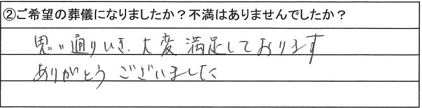 ②ご希望の葬儀になりましたか？不満はありませんでしたか？
思い通りいき、大変満足しております
ありがとうございました